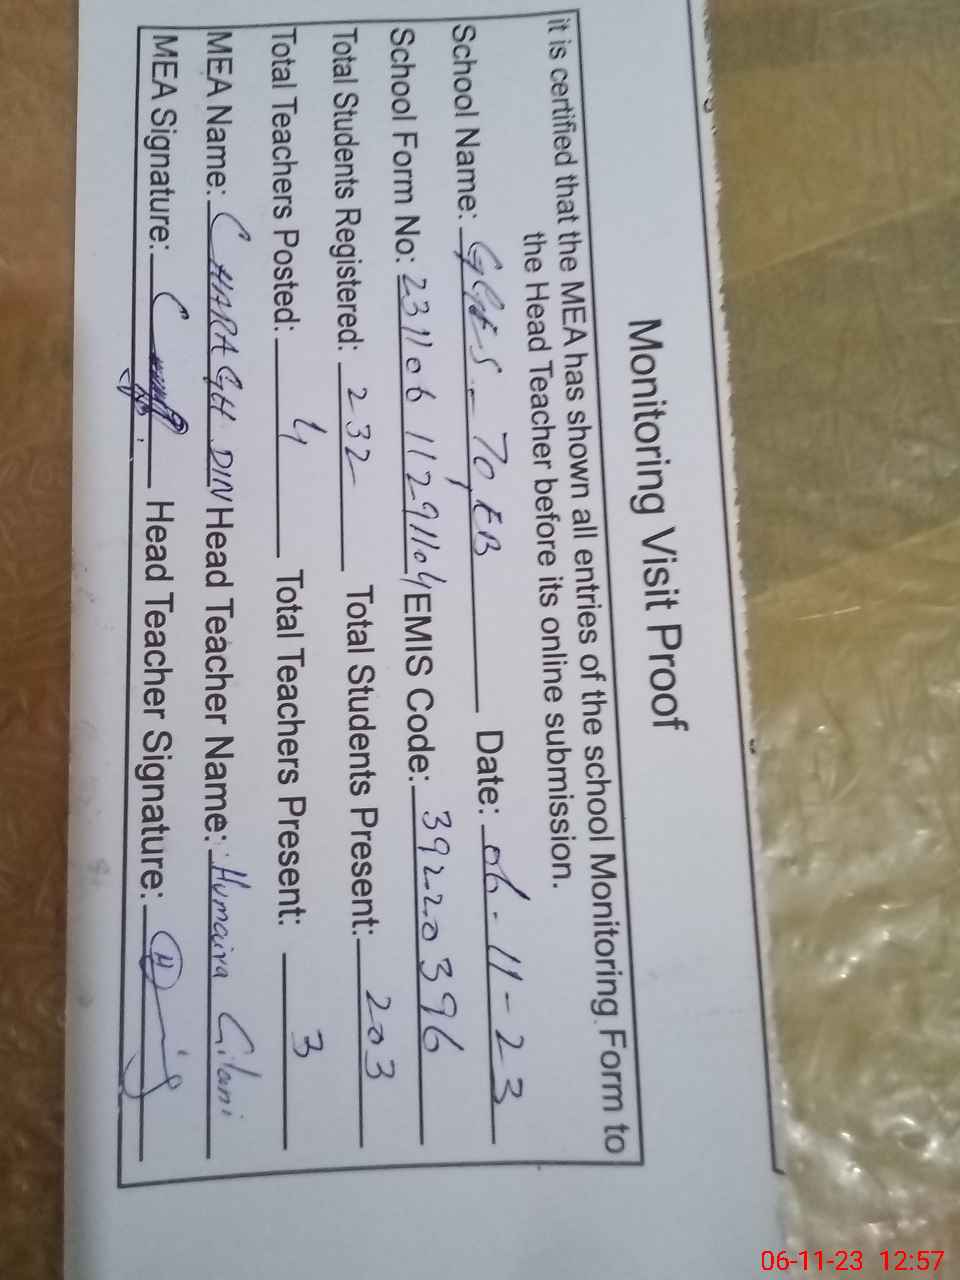 Monitoring Visit Proof
it is certified that the MEA has shown all entries of the school Monitoring Form to
the Head Teacher before its online submission.
School Name: GGES 70, EB Date: 06-11-23
School Form No: 23110611291104 EMIS Code: 39220396
Total Students Registered: 232 Total Students Present: 203
Total Teachers Posted: 4 Total Teachers Present: 3
MEA Name: CHARAGH DIN Head Teacher Name: Humaira Gilani
MEA Signature: Head Teacher Signature:
06-11-23 12:57